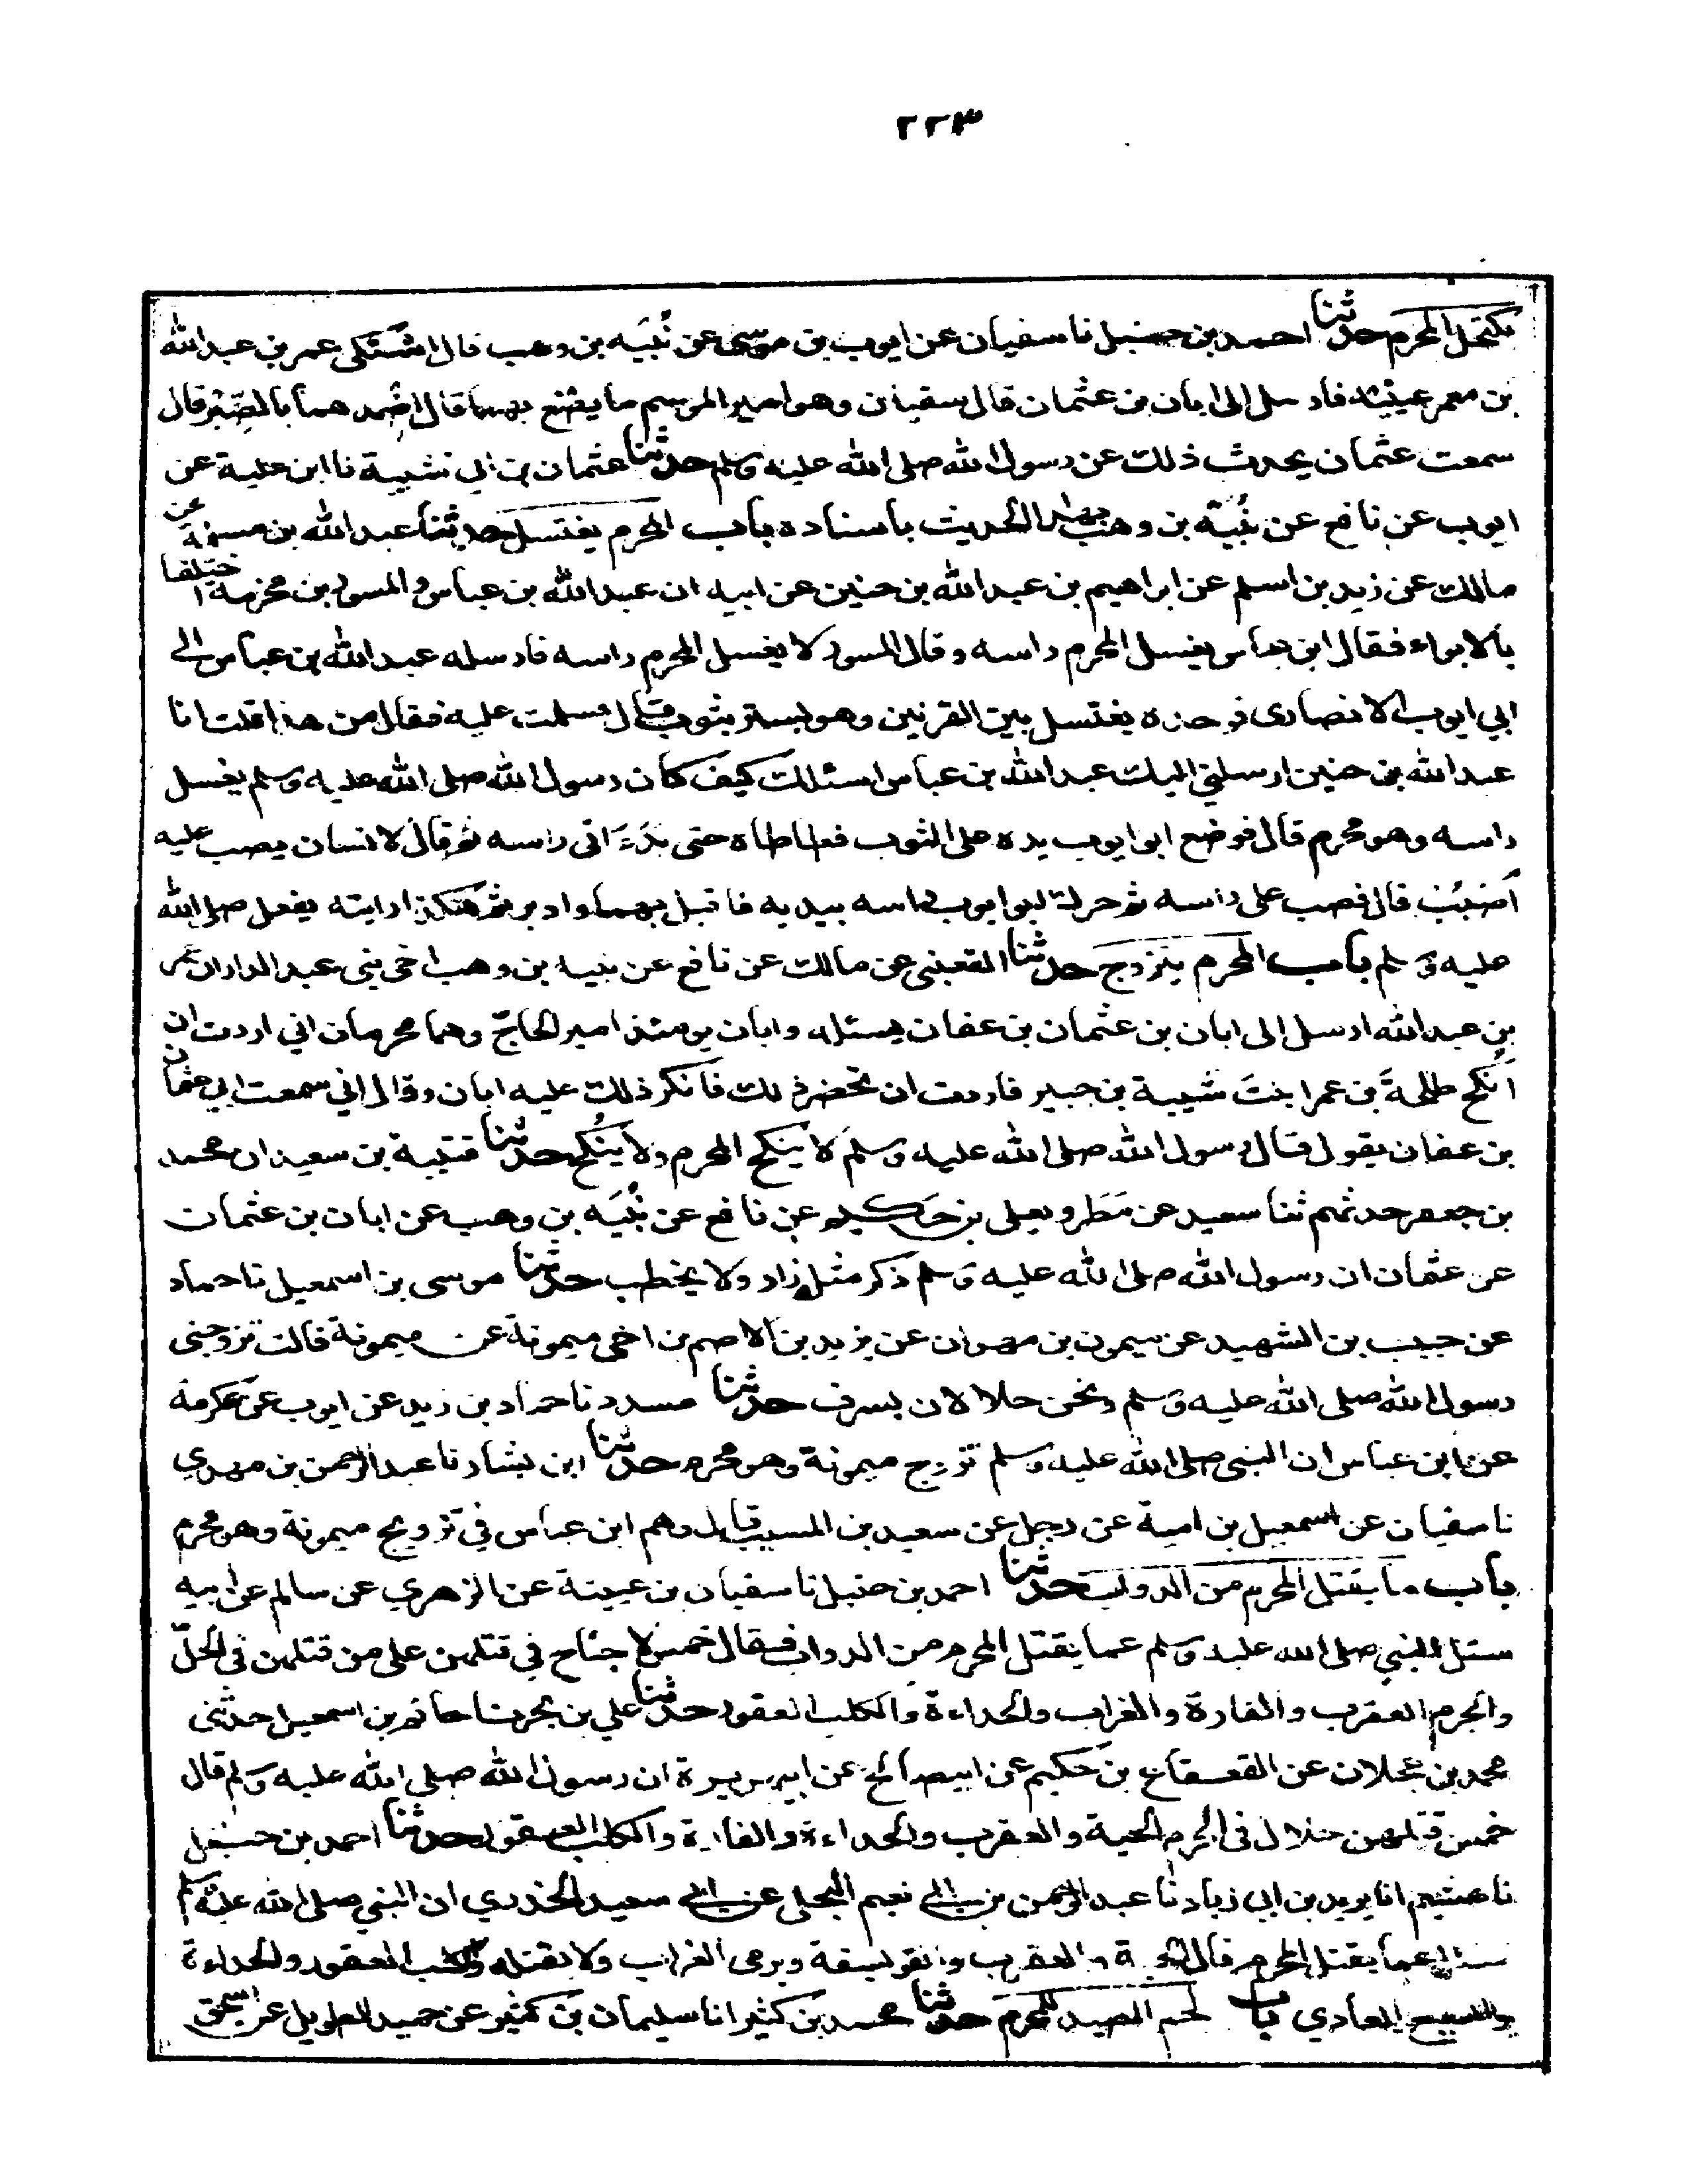 ٢٢٣
يكتحل المحرم حدثنا احمد بن حنبل نا سفيان عن ايوب بن موسى عن نُبَيه بن وهب قال اشتكى عمر بن عبد الله
بن معمر عينيه فارسل الى ابان بن عثمان قال سفيان وهو امير الموسم ما يصنع بهما قال اضمدهما بالصبر قال
سمعت عثمان يحدث ذلك عن رسول الله صلى الله عليه وسلم حدثنا عثمان بن ابي شيبة نا ابن علية عن
ايوب عن نافع عن نُبَيه بن وهب بهذا الحديث باسناده باب المحرم يغتسل حدثنا عبد الله بن مسلمة عن
مالك عن زيد بن اسلم عن ابراهيم بن عبد الله بن حنين عن ابيه ان عبد الله بن عباس والمسور بن مخرمة اختلفا
بالابواء فقال ابن عباس يغسل المحرم راسه وقال المسور لا يغسل المحرم راسه فارسله عبد الله بن عباس الى
ابي ايوب الانصارى فوجده يغتسل بين القرنين وهو يستر بثوب قال فسلمت عليه فقال من هذا قلت انا
عبد الله بن حنين ارسلني اليك عبد الله بن عباس اسئلك كيف كان رسول الله صلى الله عليه وسلم يغسل
راسه وهو محرم قال فوضع ابو ايوب يده على الثوب فطاطاه حتى بدء اتى راسه ثم قال لانسان يصب عليه
اصبُب قال فصب على راسه ثم حرك ابو ايوب راسه بيديه فاقبل بهما وادبر ثم هكذا رايته يفعل صلى الله
عليه وسلم باب المحرم يتزوج حدثنا القعنبي عن مالك عن نافع عن نبيه بن وهب اخي بني عبد الدار ان عمر
بن عبد الله ارسل الى ابان بن عثمان بن عفان يسئله وابان يومئذ امير الحاجّ وهما محرمان اني اردت ان
اُنكح طلحةَ بن عمر ابنتَ شيبة بن جبير فاردت ان تحضر ذلك فانكر ذلك عليه ابان وقال اني سمعت ابي عثمان
بن عفان يقول قال رسول الله صلى الله عليه وسلم لا يَنكح المحرم ولا يُنكح حدثنا قتيبة بن سعيد ان محمد
بن جعفر حدثهم ثنا سعيد عن مَطَر ويعلى بن حكيم عن نافع عن نُبَيَه بن وهب عن ابان بن عثمان
عن عثمان ان رسول الله صلى الله عليه وسلم ذكر مثله زاد ولا يخطب حدثنا موسى بن اسمعيل نا حماد
عن حبيب بن الشهيد عن ميمون بن مهران عن يزيد بن الاصم بن اخي ميمونة عن ميمونة قالت تزوجني
رسول الله صلى الله عليه وسلم ونحن حلالان بسرف حدثنا مسدد نا حماد بن زيد عن ايوب عن عكرمة
عن ابن عباس ان النبي صلى الله عليه وسلم تزوج ميمونة وهو محرم حدثنا ابن بشار نا عبد الرحمن بن مهدي
نا سفيان عن اسمعيل بن امية عن رجل عن سعيد بن المسيب قال وهم ابن عباس في تزويج ميمونة وهو محرم
باب ما يقتل المحرم من الدواب حدثنا احمد بن حنبل نا سفيان بن عيينة عن الزهري عن سالم عن ابيه
سئل النبي صلى الله عليه وسلم عما يقتل المحرم من الدواب فقال خمس لا جناح في قتلهن على من قتلهن في الحلّ
والحرم العقرب والفارة والغراب والحداءة والكلب العقور حدثنا علي بن بحر نا حاتم بن اسمعيل حدثني
محمد بن عجلان عن القعقاع بن حكيم عن ابي صالح عن ابي هريرة ان رسول الله صلى الله عليه وسلم قال
خمس قتلهن حلال في الحرم الحية والعقرب والحداءة والفارة والكلب العقور حدثنا احمد بن حنبل
نا هشيم انا يزيد بن ابي زياد نا عبد الرحمن بن ابي نعيم البجلي عن ابي سعيد الخدري ان النبي صلى الله عليه وسلم
سئل عما يقتل المحرم قال الحية والعقرب والفويسقة ويرمى الغراب ولا يقتله والكلب العقور والحداءة
والسبع العادي باب لحم الصيد للمحرم حدثنا محمد بن كثير انا سليمان بن كثير عن حميد الطويل عن اسحق